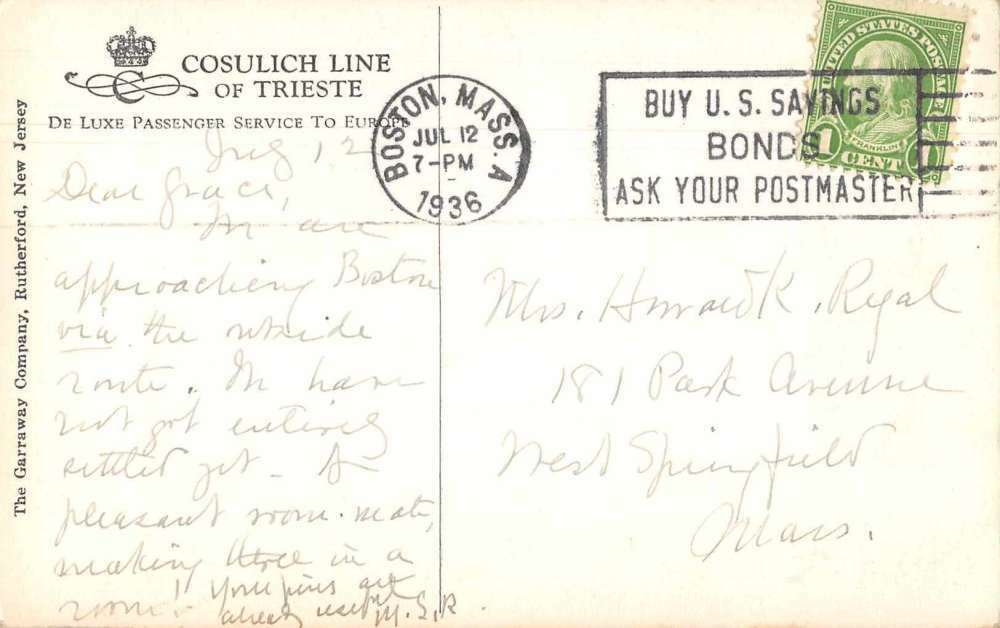 COSULICH LINE
OF TRIESTE
DE LUXE PASSENGER SERVICE TO EUROPE
The Garraway Company, Rutherford, New Jersey
BOSTON, MASS. A
JUL 12
7-PM
1936
BUY U.S. SAVINGS
BONDS
ASK YOUR POSTMASTER
UNITED STATES POSTAGE
FRANKLIN
1 CENT 1
July 12
Dear Grace,
We are
approaching Boston
via the outside
route. We have
not got entirely
settled yet - A
pleasant room-mate,
making three in a
room! Your pins are
already useful M.S.R.
Mrs. Howard K. Regal
181 Park Avenue
West Springfield
Mass.